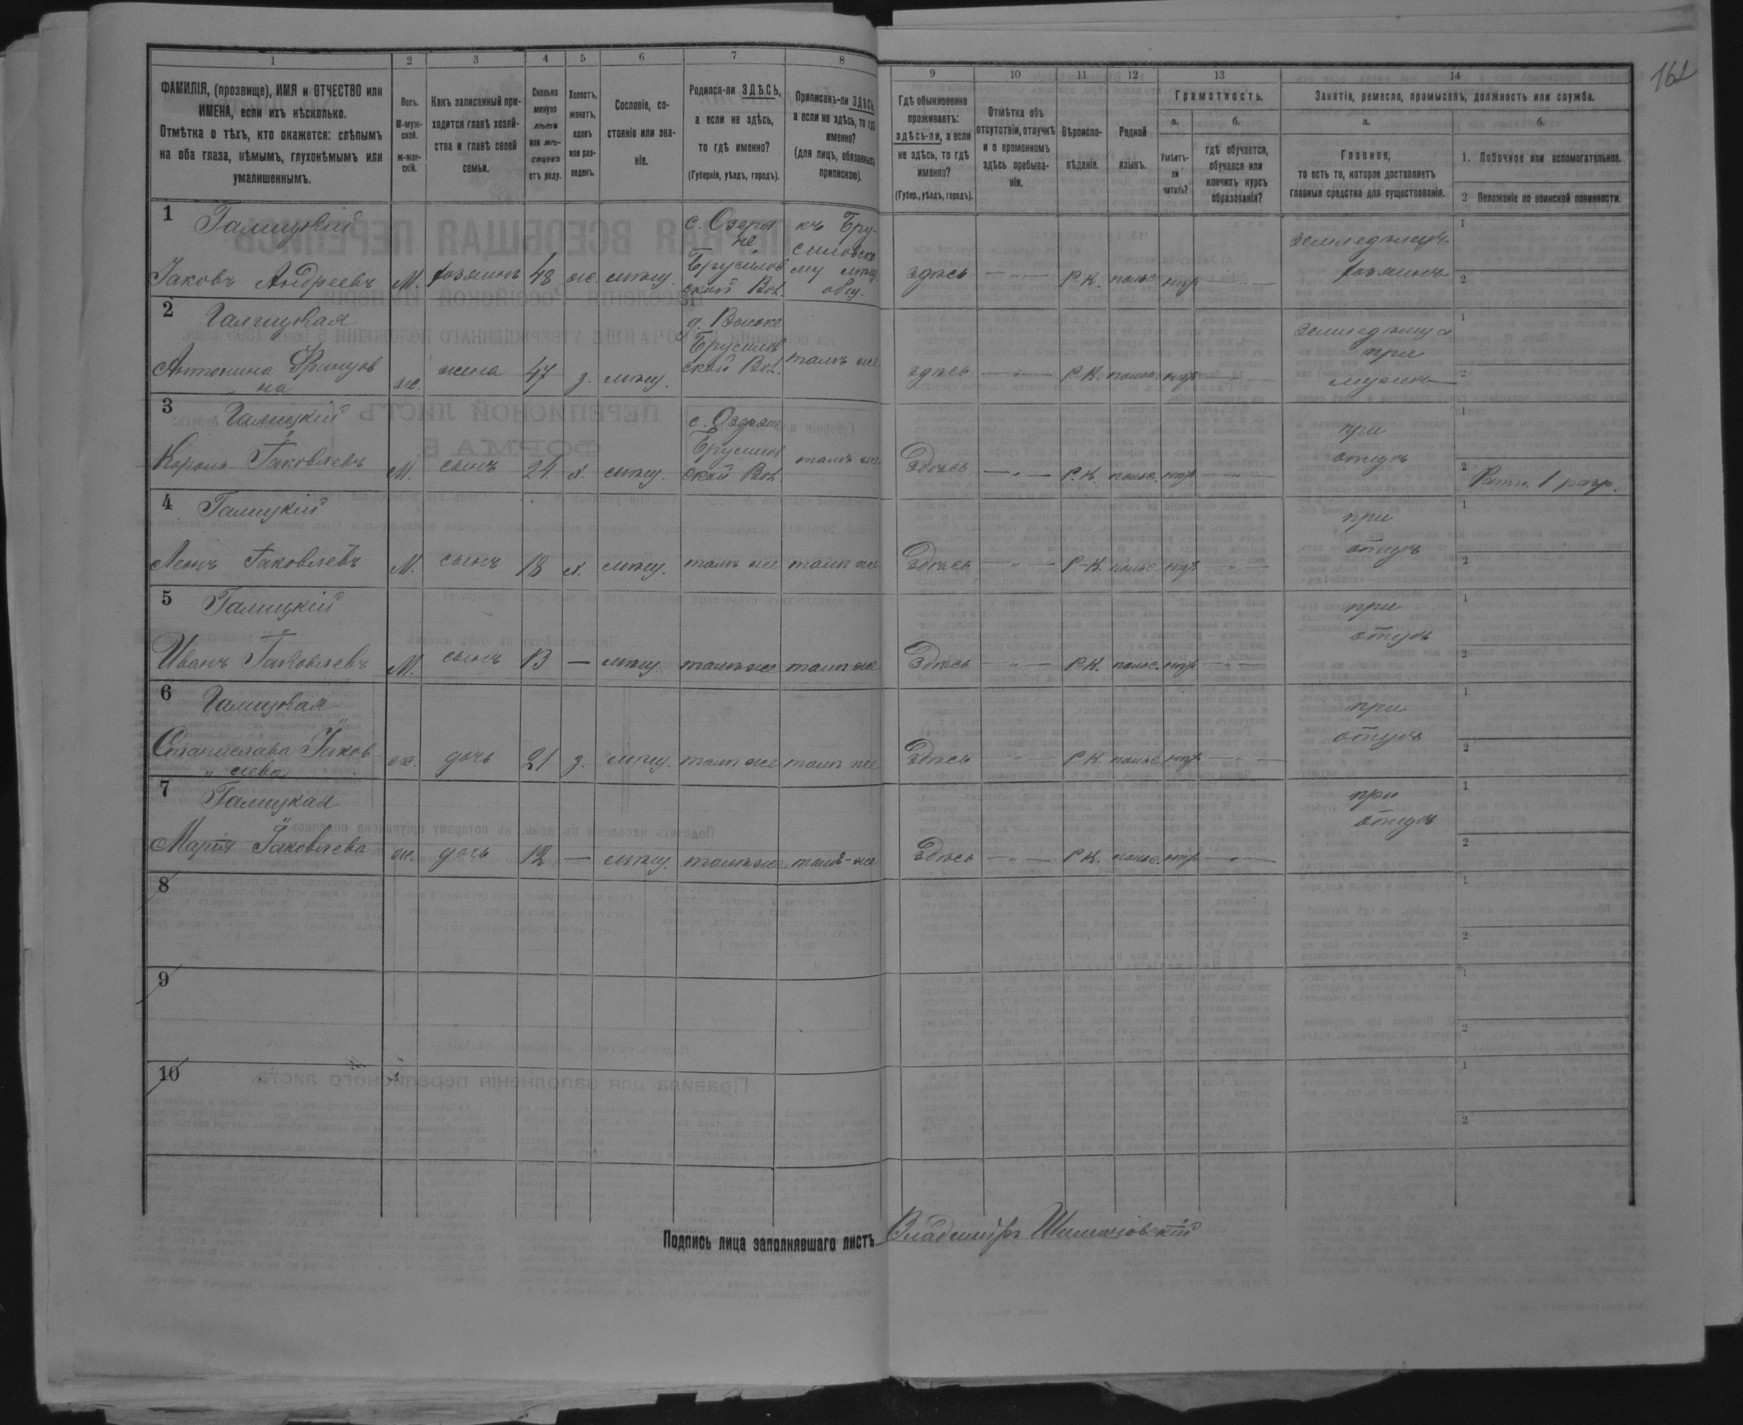 162
1 2 3 4 5 6 7 8 9 10 11 12 13 14
ФАМИЛІЯ, (прозвище), ИМЯ и ОТЧЕСТВО или ИМЕНА, если ихъ нѣсколько.
Отмѣтка о тѣхъ, кто окажется: слѣпымъ на оба глаза, нѣмымъ, глухонѣмымъ или умалишеннымъ.
Полъ.
М-мужской.
ж-женскій.
Какъ записанный приходится главѣ хозяйства и главѣ своей семьи.
Сколько минуло лѣтъ или мѣсяцевъ отъ роду.
Холостъ, женатъ, вдовъ или разведенъ.
Сословіе, состояніе или званіе.
Родился-ли ЗДѢСЬ, а если не здѣсь, то гдѣ именно?
(Губернія, уѣздъ, городъ).
Приписанъ-ли ЗДѢСЬ, а если не здѣсь, то гдѣ именно?
(для лицъ, обязанныхъ припискою).
Гдѣ обыкновенно проживаетъ: здѣсь-ли, а если не здѣсь, то гдѣ именно?
(Губер., уѣздъ, городъ).
Отмѣтка объ отсутствіи, отлучкѣ и о временномъ здѣсь пребываніи.
Вѣроисповѣданіе.
Родной языкъ.
Грамотность.
а. Умѣетъ-ли читать?
б. гдѣ обучается, обучался или кончилъ курсъ образованія?
Занятіе, ремесло, промыселъ, должность или служба.
а. Главное,
то есть то, которое доставляетъ главныя средства для существованія.
б.
1. Побочное или вспомогательное.
2 Положеніе по воинской повинности.
1 Галицкій
Іаковъ Андреевъ М. хозяинъ 48 ж. мѣщ. Брусиловской Вол. здѣсь — " — Р.К. польс. нѣтъ — " — хозяинъ
1
2
2 Галицкая
Антонина Францовна ж. жена 47 з. мѣщ. Брусиловской Вол. тамъ же здѣсь — " — Р.К. польс. нѣтъ — " — при мужѣ
1
2
3 Галицкій
Кароль Іаковлевъ М. сынъ 21 х. мѣщ. Брусиловской Вол. тамъ же Здѣсь — " — Р.К. польс. нѣтъ — " — при отцѣ
1
2 Ратн. 1 разр.
4 Галицкій
Леонъ Іаковлевъ М. сынъ 18 х. мѣщ. тамъ же тамъ же Здѣсь — " — Р-К. польс. нѣтъ — " — при отцѣ
1
2
5 Галицкій
Иванъ Іаковлевъ М. сынъ 13 — мѣщ. тамъ же тамъ же Здѣсь — " — Р.К. польс. нѣтъ — " — при отцѣ
1
2
6 Галицкая
Станислава Іаковлева ж. дочь 21 з. мѣщ. тамъ же тамъ же Здѣсь — " — Р.К. польс. нѣтъ — " — при отцѣ
1
2
7 Галицкая
Марія Іаковлева ж. дочь 12 — мѣщ. тамъ же тамъ-же Здѣсь — " — Р.К. польс. нѣтъ — " — при отцѣ
1
2
8
1
2
9
1
2
10
1
2
Подпись лица заполнявшаго листъ Владиміръ